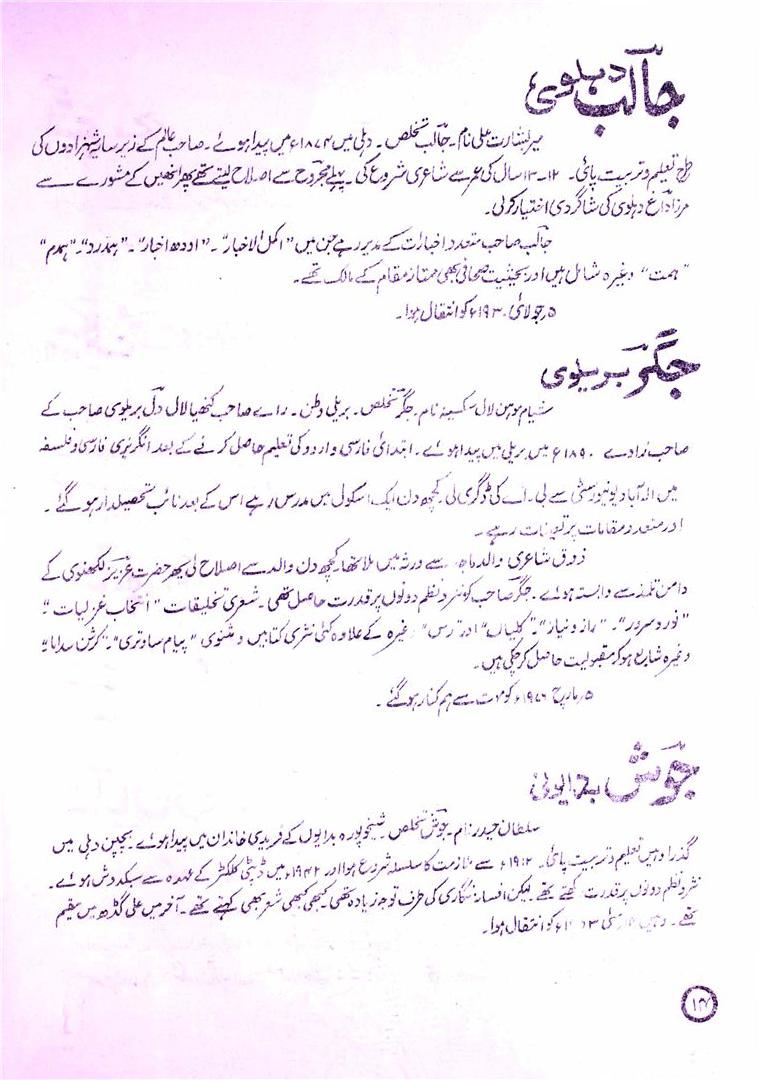 جالبؔ دہلوی
میر بشارت علی نام۔ جالبؔ تخلص۔ دہلی میں ۱۸۷۴ء میں پیدا ہوئے۔ صاحب عالم کے زیر سایہ شہزادوں کی
طرح تعلیم و تربیت پائی۔ ۱۲۔۱۳ سال کی عمر سے شاعری شروع کی۔ پہلے مجروحؔ سے اصلاح لیتے تھے پھر انھیں کے مشورے سے
مرزا داغؔ دہلوی کی شاگردی اختیار کرلی۔
جالبؔ صاحب متعدد اخبارات کے مدیر رہے جن میں "اکمل الاخبار"۔ "اودھ اخبار"۔ "ہمدرد"۔ "ہمدم"
"ہمت" وغیرہ شامل ہیں اور بحیثیت صحافی بھی ممتاز مقام کے مالک تھے۔
۵؍جولائی ۱۹۳۰ء کو انتقال ہوا۔
جگرؔ بریلوی
شیام موہن لال سکسینہ نام۔ جگرؔ تخلص۔ بریلی وطن۔ رائے صاحب کنھیا لال دلؔ بریلوی صاحب کے
صاحب زادے ۱۸۹۰ء میں بریلی میں پیدا ہوئے۔ ابتدائی فارسی و اردو کی تعلیم حاصل کرنے کے بعد انگریزی فارسی و فلسفہ
میں الہ آباد یونیورسٹی سے بی۔ اے کی ڈگری لی۔ کچھ دن ایک اسکول میں مدرس رہے اس کے بعد نائب تحصیلدار ہوگئے۔
اور متعدد مقامات پر تعینات رہے۔
ذوق شاعری والد سے ورثہ میں ملا تھا۔ کچھ دن والد سے اصلاح لی پھر حضرت عزیزؔ لکھنوی کے
دامن تلمذ سے وابستہ ہوئے۔ جگرؔ صاحب کو نثر و نظم دونوں پر قدرت حاصل تھی۔ شعری تخلیقات "انتخاب غزلیات"۔
"نور و سرور"۔ "راز و نیاز"۔ "کلیاں" اور "رس" وغیرہ کے علاوہ کئی نثری کتابیں و مثنوی "پیام ساوتری"۔ "کرشن سداما"
وغیرہ شایع ہوکر مقبولیت حاصل کرچکی ہیں۔
۵؍مارچ ۱۹۷۶ء کو موت سے ہم کنار ہوگئے۔
جوشؔ بدایونی
سلطان حیدر نام۔ جوشؔ تخلص۔ شیخوپورہ بدایوں کے فریدی خاندان میں پیدا ہوئے۔ بچپن دہلی میں
گذرا وہیں تعلیم و تربیت پائی۔ ۱۹۱۲ء سے ملازمت کا سلسلہ شروع ہوا اور ۱۹۴۲ء میں ڈپٹی کلکٹر کے عہدہ سے سبکدوش ہوئے۔
نثر و نظم دونوں پر قدرت رکھتے تھے لیکن افسانہ نگاری کی طرف توجہ زیادہ تھی کبھی کبھی شعر بھی کہتے تھے۔ آخر میں علی گڈھ میں مقیم
تھے۔ وہیں مئی کو انتقال ہوا۔